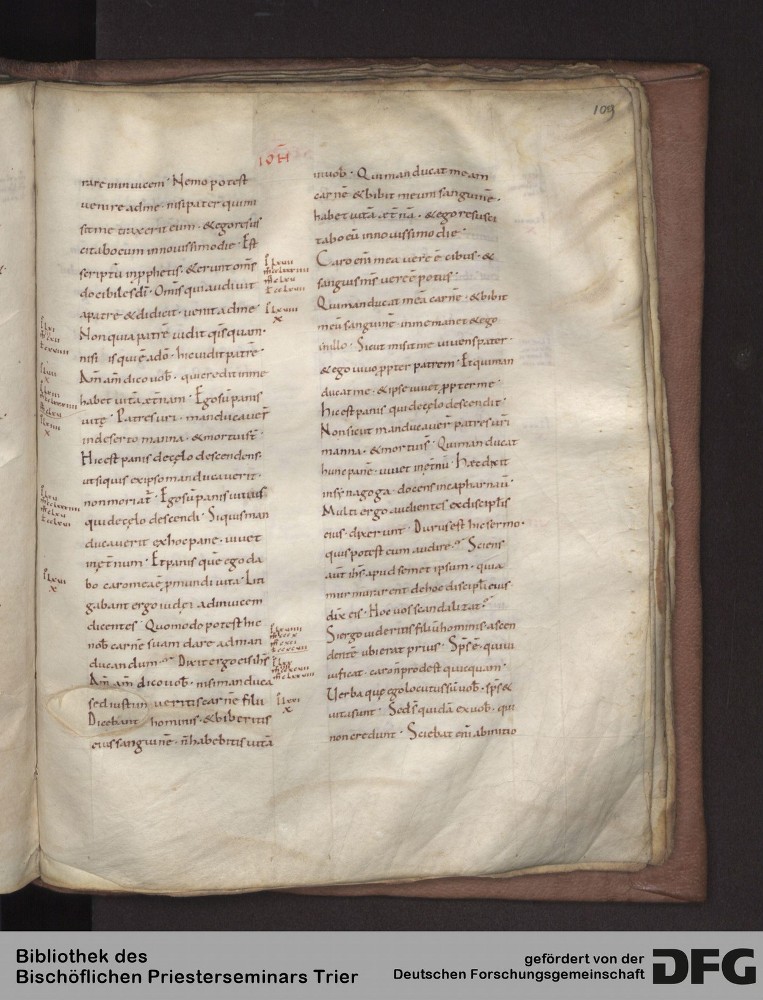 109
IOH
rare in inuicem · Nemo potest
uenire ad me · nisi pater qui mi
sit me traxerit eum · & ego resus
citabo eum in nouissimo die · Est
scriptū in pphetis · & erunt om̄s
docibiles dī · Om̄is qui audiuit
a patre & didicit · uenit ad me ·
Non quia patrē uidit qisquam ·
nisi is qui ē a dō · hic uidit patrē ·
Am̄ am̄ dico uob̄ · qui credit in me
habet uitā et̄nam · Ego sū panis
uitę · Patres ur̄i · manducauer̄
in deserto manna · & mortui s̄t ·
Hic est panis de cęlo descendens ·
ut siquis ex ipso manducauerit ·
non moriat̄ · Ego sū panis uiuus
qui de cęlo descendi · Siquis man
ducauerit ex hoc pane · uiuet
in et̄num · Et panis quē ego da
bo caro mea ē p mundi uita · Liti
gabant ergo iudęi ad inuicem
dicentes · Quomodo potest hic
nob̄ carnē suam dare ad man
ducandum · Dixit ergo eis ihs̄
Am̄ am̄ dico uob̄ · nisi manduca
ueritis carnē filii
Dicebant hominis · & biberitis
eius sanguinē · n̄ habebitis uitā
in uob̄ · Qui manducat meam
carnē & bibit meum sanguinē ·
habet uitā et̄nā · & ego resusci
tabo eū in nouissimo die ·
Caro em̄ mea uere ē cibus · &
sanguis m̄s uere ē potus ·
Qui manducat meā carnē · & bibit
meū sanguinē · in me manet & ego
in illo · Sicut misit me uiuens pater ·
& ego uiuo ppter patrem · Et qui man
ducat me · & ipse uiuet ppter me ·
Hic est panis qui de cęlo descendit ·
Non sicut manducauer̄ patres ur̄i
manna · & mortui s̄t · Qui manducat
hunc panē · uiuet in et̄nū · Hęc dixit
in synagoga · docens in capharnaū ·
Multi ergo audientes ex discipl̄is
eius · dixerunt · Durus est hic sermo ·
quis potest eum audire · Sciens
aut̄ ihs̄ apud semet ipsum · quia
murmurarent de hoc discipl̄i eius
dix̄ eis · Hoc uos scandalizat ·
Si ergo uideritis filiū hominis ascen
dentē ubi erat prius · Sp̄s ē · qui ui
uificat · caro n̄ prodest quicquam ·
Uerba quę ego locutus sū uob̄ · sp̄s &
uita sunt · Sed s̄t quidā ex uob̄ · qui
non credunt · Sciebat em̄ ab initio
Bibliothek des
Bischöflichen Priesterseminars Trier
gefördert von der
Deutschen Forschungsgemeinschaft
DFG